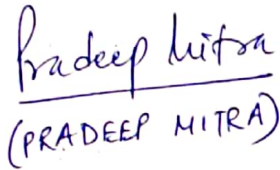 Pradeep Mitra
(PRADEEP MITRA)